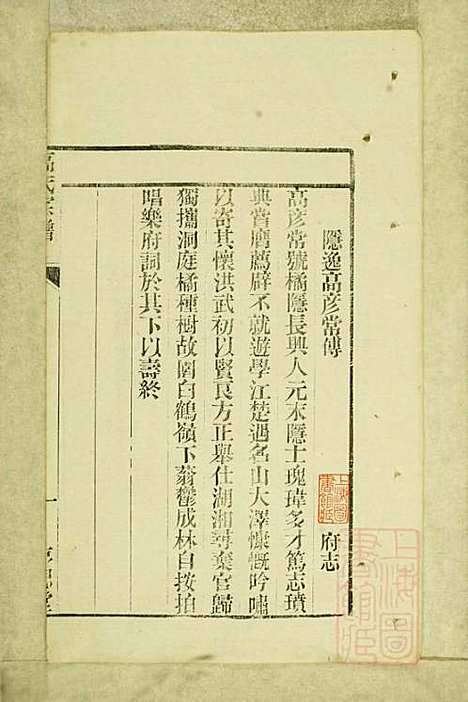 隱逸高彥常傳
府志
高彥常號橘隱長興人元末隱士瑰瑋多才篤志墳
典嘗膺薦辟不就遊學江楚遇名山大澤慷慨吟嘯
以寄其懷洪武初以賢良方正舉仕湖湘尋棄官歸
獨攜洞庭橘種樹故園白鶴嶺下蓊鬱成林自按拍
唱樂府詞於其下以壽終
高氏宗譜
一
上海圖書館藏
上海圖書館藏